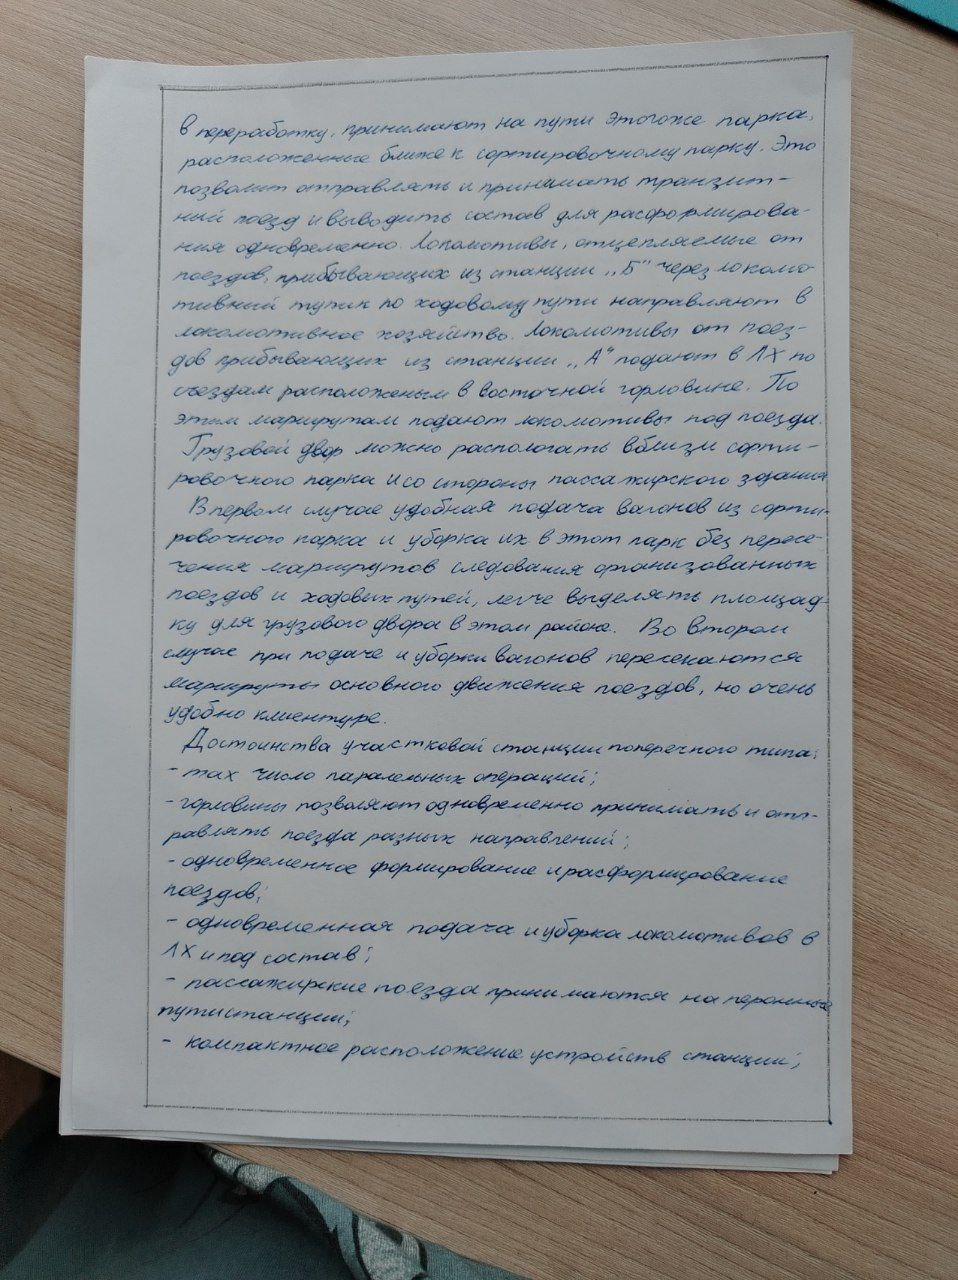 в переработку, принимают на пути этогоже парка,
расположенные ближе к сортировочному парку. Это
позволит отправлять и принимать транзит-
ний поезд и выводить состав для расформирова-
ния одновременно. Локомотивы, отцепляемые от
поездов, прибывающих из станции „Б" через локомо-
тивний тупик по ходовому пути направляют в
локомотивное хозяйство. Локомотивы от поез-
дов прибывающих из станции „А" подают в ЛХ по
съездам расположеным в восточной горловине. По
этим маршрутам подают локомотивы под поезда.
Грузовой двор можно распологать вблизи сорти-
ровочного парка и со стороны пассажирского здания
В первом случае удобная подача вагонов из сорти-
ровочного парка и уборка их в этот парк без пересе-
чения маршрутов следования организованных
поездов и ходовых путей, легче выделять площад-
ку для грузового двора в этом районе. Во втором
случае при подаче и уборки вагонов пересекаются
маршруты основного движения поездов, но очень
удобно клиентуре.
Достоинства участковой станции поперечного типа:
- max число паралельных операций;
- горловины позволяют одновременно принимать и отп-
равлять поезда разных направлений;
- одновременное формирование и расформирование
поездов;
- одновременная подача и уборка локомотивов в
ЛХ и под состав;
- пассажирские поезда принимаются на перонные
пути станции;
- компактное расположение устройств станции;